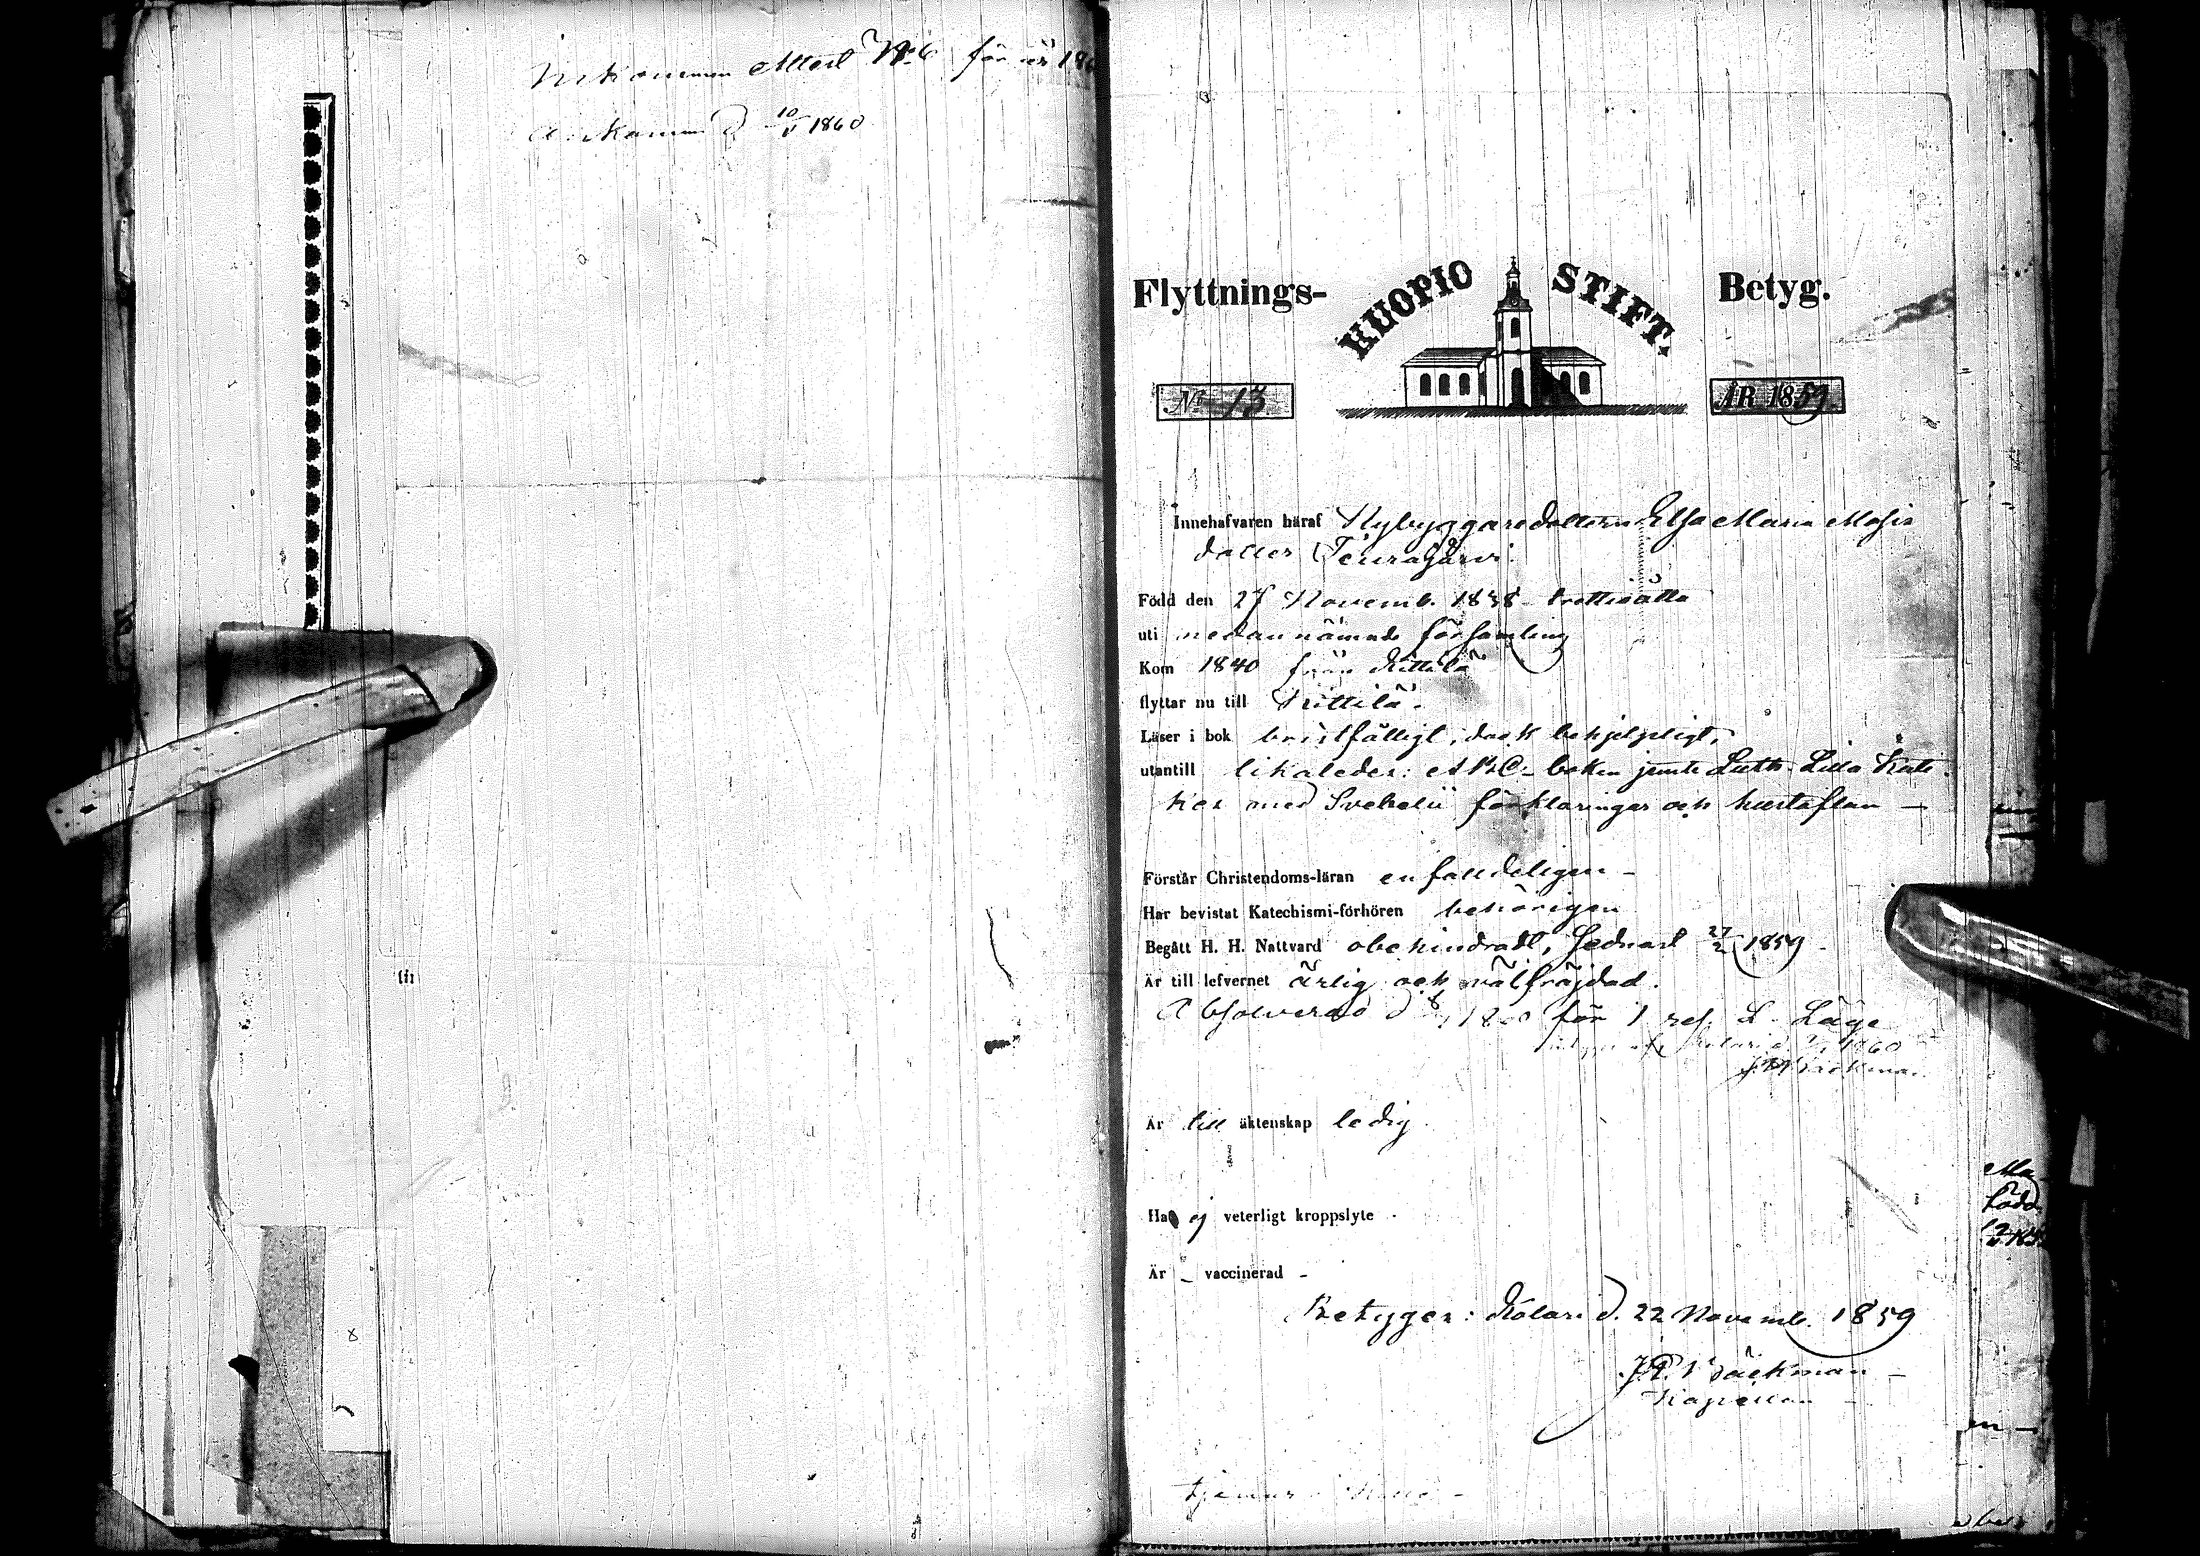 Attest No 6 för år 186
10/ 1860
Flyttnings- KUOPIO STIFT. Betyg.
No 13 ÅR 1859
Innehafvaren häraf Nybyggaredottern Elsa Maria Mosis
dotter Teurajärvi
Född den 27 Novemb. 1838 trettioåtta
uti nedannämnde församling
Kom 1840 från Kittilä
flyttar nu till Kittilä.
Läser i bok bristfälligt, dock behjelpeligt,
utantill likaledes: ABC-boken jemte Luth. Lilla Kate-
kes med Svebelii förklaringar och hustaflan —
Förstår Christendoms-läran enfalldeligen –
Har bevistat Katechismi-förhören behörigen
Begått H. H. Nattvard obehindradt, sednast 27/2 1859 –
Är till lefvernet ärlig och välfräjdad.
Absolverad d 8/ 18 0 för 1 L. Läge
1860
Bäckman
Är till äktenskap ledig
Ha ej veterligt kroppslyte -
Är – vaccinerad -
Betygar: Kolari d. 22 Novemb. 1859
J. Bäckman –
Kapellan –
tjenar i
lin
Ma
född